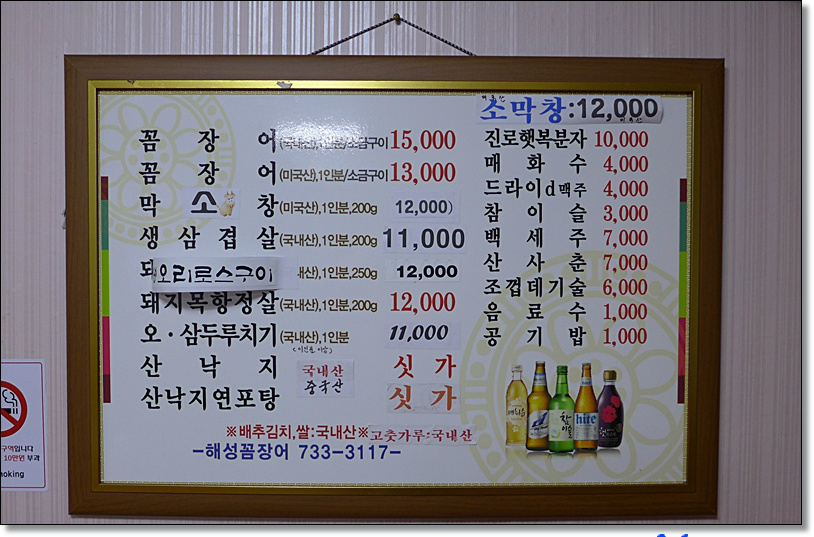 소막창:12,000
꼼장어(국내산),1인분/소금구이 15,000
꼼장어(미국산),1인분/소금구이 13,000
막 소 창(미국산),1인분,200g 12,000)
생삼겹살(국내산),1인분,200g 11,000
오리로스구이 내산),1인분,250g 12,000
돼지목항정살(국내산),1인분,200g 12,000
오·삼두루치기(국내산),1인분 11,000
산낙지 국내산 중국산 싯가
산낙지연포탕 싯가
진로햇복분자 10,000
매화수 4,000
드라이d맥주 4,000
참이슬 3,000
백세주 7,000
산사춘 7,000
조껍데기술 6,000
음료수 1,000
공기밥 1,000
※배추김치,쌀:국내산※고춧가루:국내산
-해성꼼장어 733-3117-
참이슬
hite
구역입니다
10만원 부과
moking